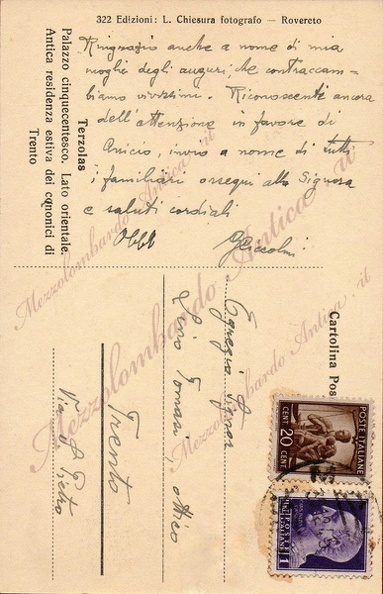 322 Edizioni: L. Chiesura fotografo — Rovereto
Ringrazio anche a nome di mia
moglie degli auguri, che contraccam-
biamo vivissimi. Riconoscente ancora
dell'attenzione in favore di
invio a nome di tutti
i familiari ossequi alla Signora
e saluti cordiali
Obbl
Terzolas
Palazzo cinquecentesco. Lato orientale.
Antica residenza estiva dei canonici di
Trento
Cartolina Pos
Egregio Signor
Livio Tomasi, ottico
Trento
Via S. Pietro
POSTE ITALIANE
CENT 20 CENT
POSTE
ITALIANE
1
Mezzolombardo Antica .it
Mezzolombardo Antica .it
Mezzolombardo Antica .it